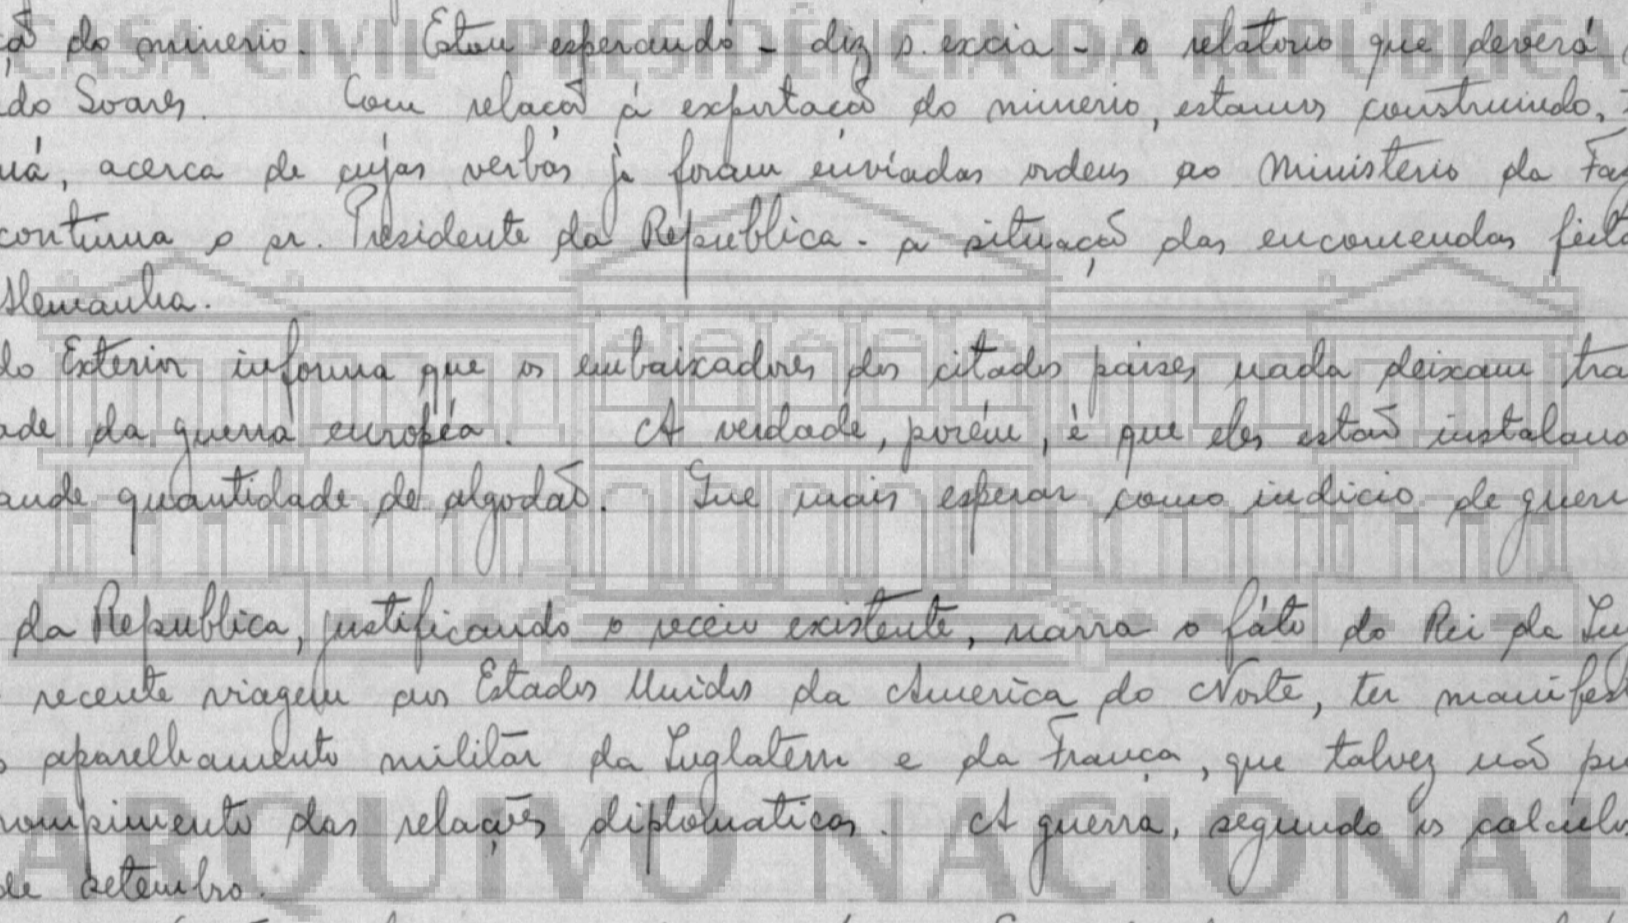 CASA CIVIL PRESIDÊNCIA DA REPÚBLICA
ção do minerio. Estou esperando - diz s. excia - o relatorio que deverá
do Soares. Com relacão á exportacão do minerio, estamos construindo,
uá, acerca de cujas verbas já foram enviadas ordens ao Ministério da Faz
continua o sr. Presidente da Republica - a situação das encomendas feita
Alemanha.
do Exterior informa que os embaixadores dos citados paises nada deixam tra
ade da guerra européa. A verdade, porém, é que eles estão instaland
ande quantidade de algodão. Que mais esperar como indicio de guerr
da Republica, justificando o receio existente, narra o fáto do Rei da Ing
recente viagem aos Estados Unidos da America do Norte, ter manifest
o aparelhamento militar da Inglaterra e da França, que talvez não pu
rompimento das relações diplomaticas. A guerra, segundo os calculos
de setembro.
ARQUIVO NACIONAL